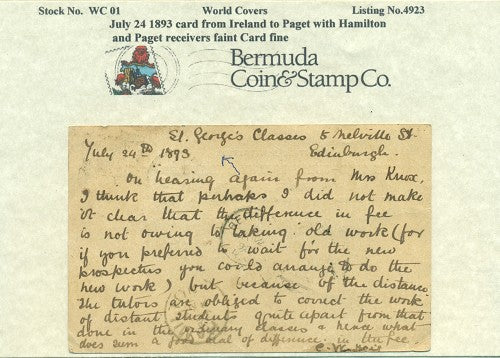 Stock No. WC 01 World Covers Listing No.4923
July 24 1893 card from Ireland to Paget with Hamilton
and Paget receivers faint Card fine
Bermuda
Coin&Stamp Co.
St. George's Classes 5 Melville St.
July 24th 1893 Edinburgh.
On hearing again from Mrs Knox
I think that perhaps I did not make
it clear that the difference in fee
is not owing to taking old work (for
if you preferred to wait for the new
prospectus you could arrange to do the
new work), but because of the distance
The tutors are obliged to correct the work
of distant students quite apart from that
done in the ordinary classes & hence what
does seem a good deal of difference in the fee.